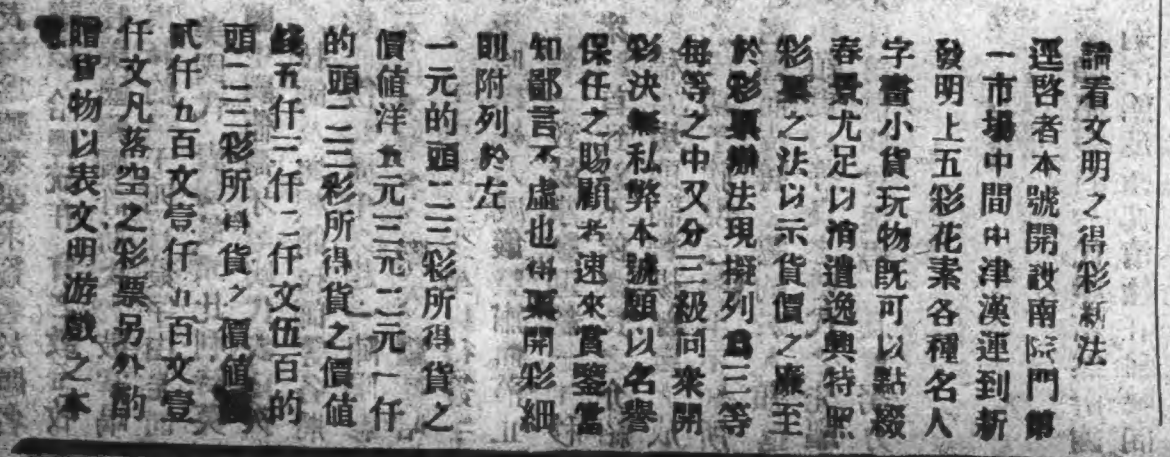 請看文明之得彩新法
逕啓者本號開設南院門第
一市場中間由津漢運到新
發明上五彩花素各種名人
字畫小貨玩物既可以點綴
春景尤足以消遣逸興特照
彩票之法以示貨價之廉至
於彩票辦法現擬列爲三等
每等之中又分三級同衆開
彩決無私弊本號願以名譽
保任之賜顧者速來賞鑒當
知鄙言不虛也得票開彩細
則附列於左
一元的頭二三彩所得貨之
價値洋五元三元二元一仟
的頭二三彩所得貨之價値
錢五仟三仟二仟文伍百的
頭二三彩所得貨之價値錢
貳仟九百文壹仟五百文壹
仟文凡落空之彩票另外酌
贈貨物以表文明游戲之本